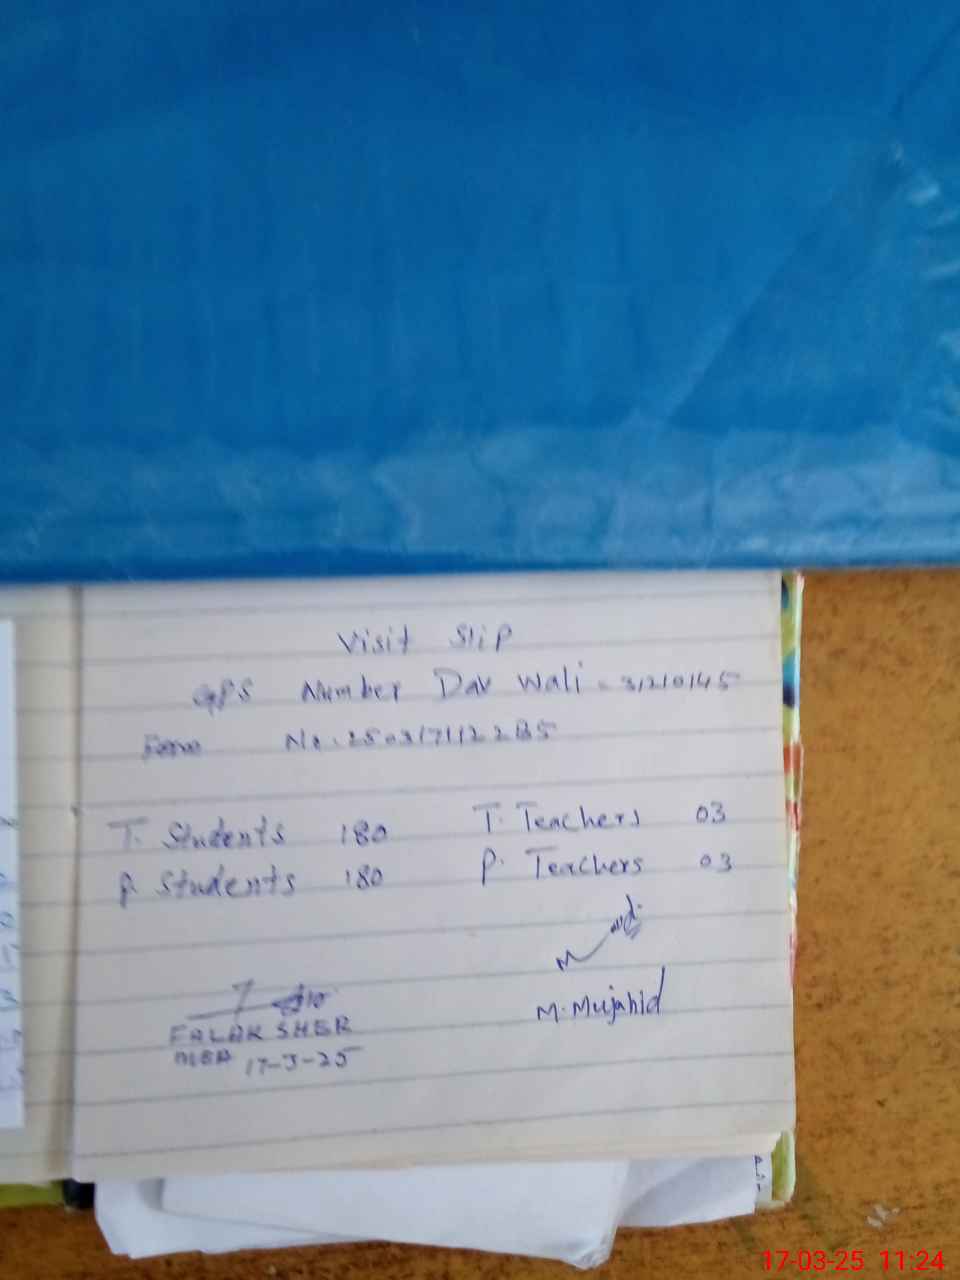 Visit Slip
GPS Number Dar Wali - 31210145
Form No. 2503171122B5
T. Students 180 T. Teachers 03
P. Students 180 P. Teachers 03
M. Mujahid
FALAK SHER
MEA 17-3-25
17-03-25 11:24